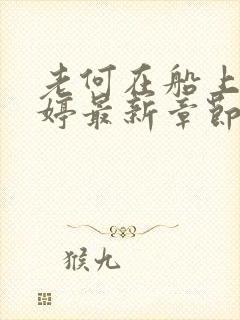 老何在船上
婷最新章节
猴九